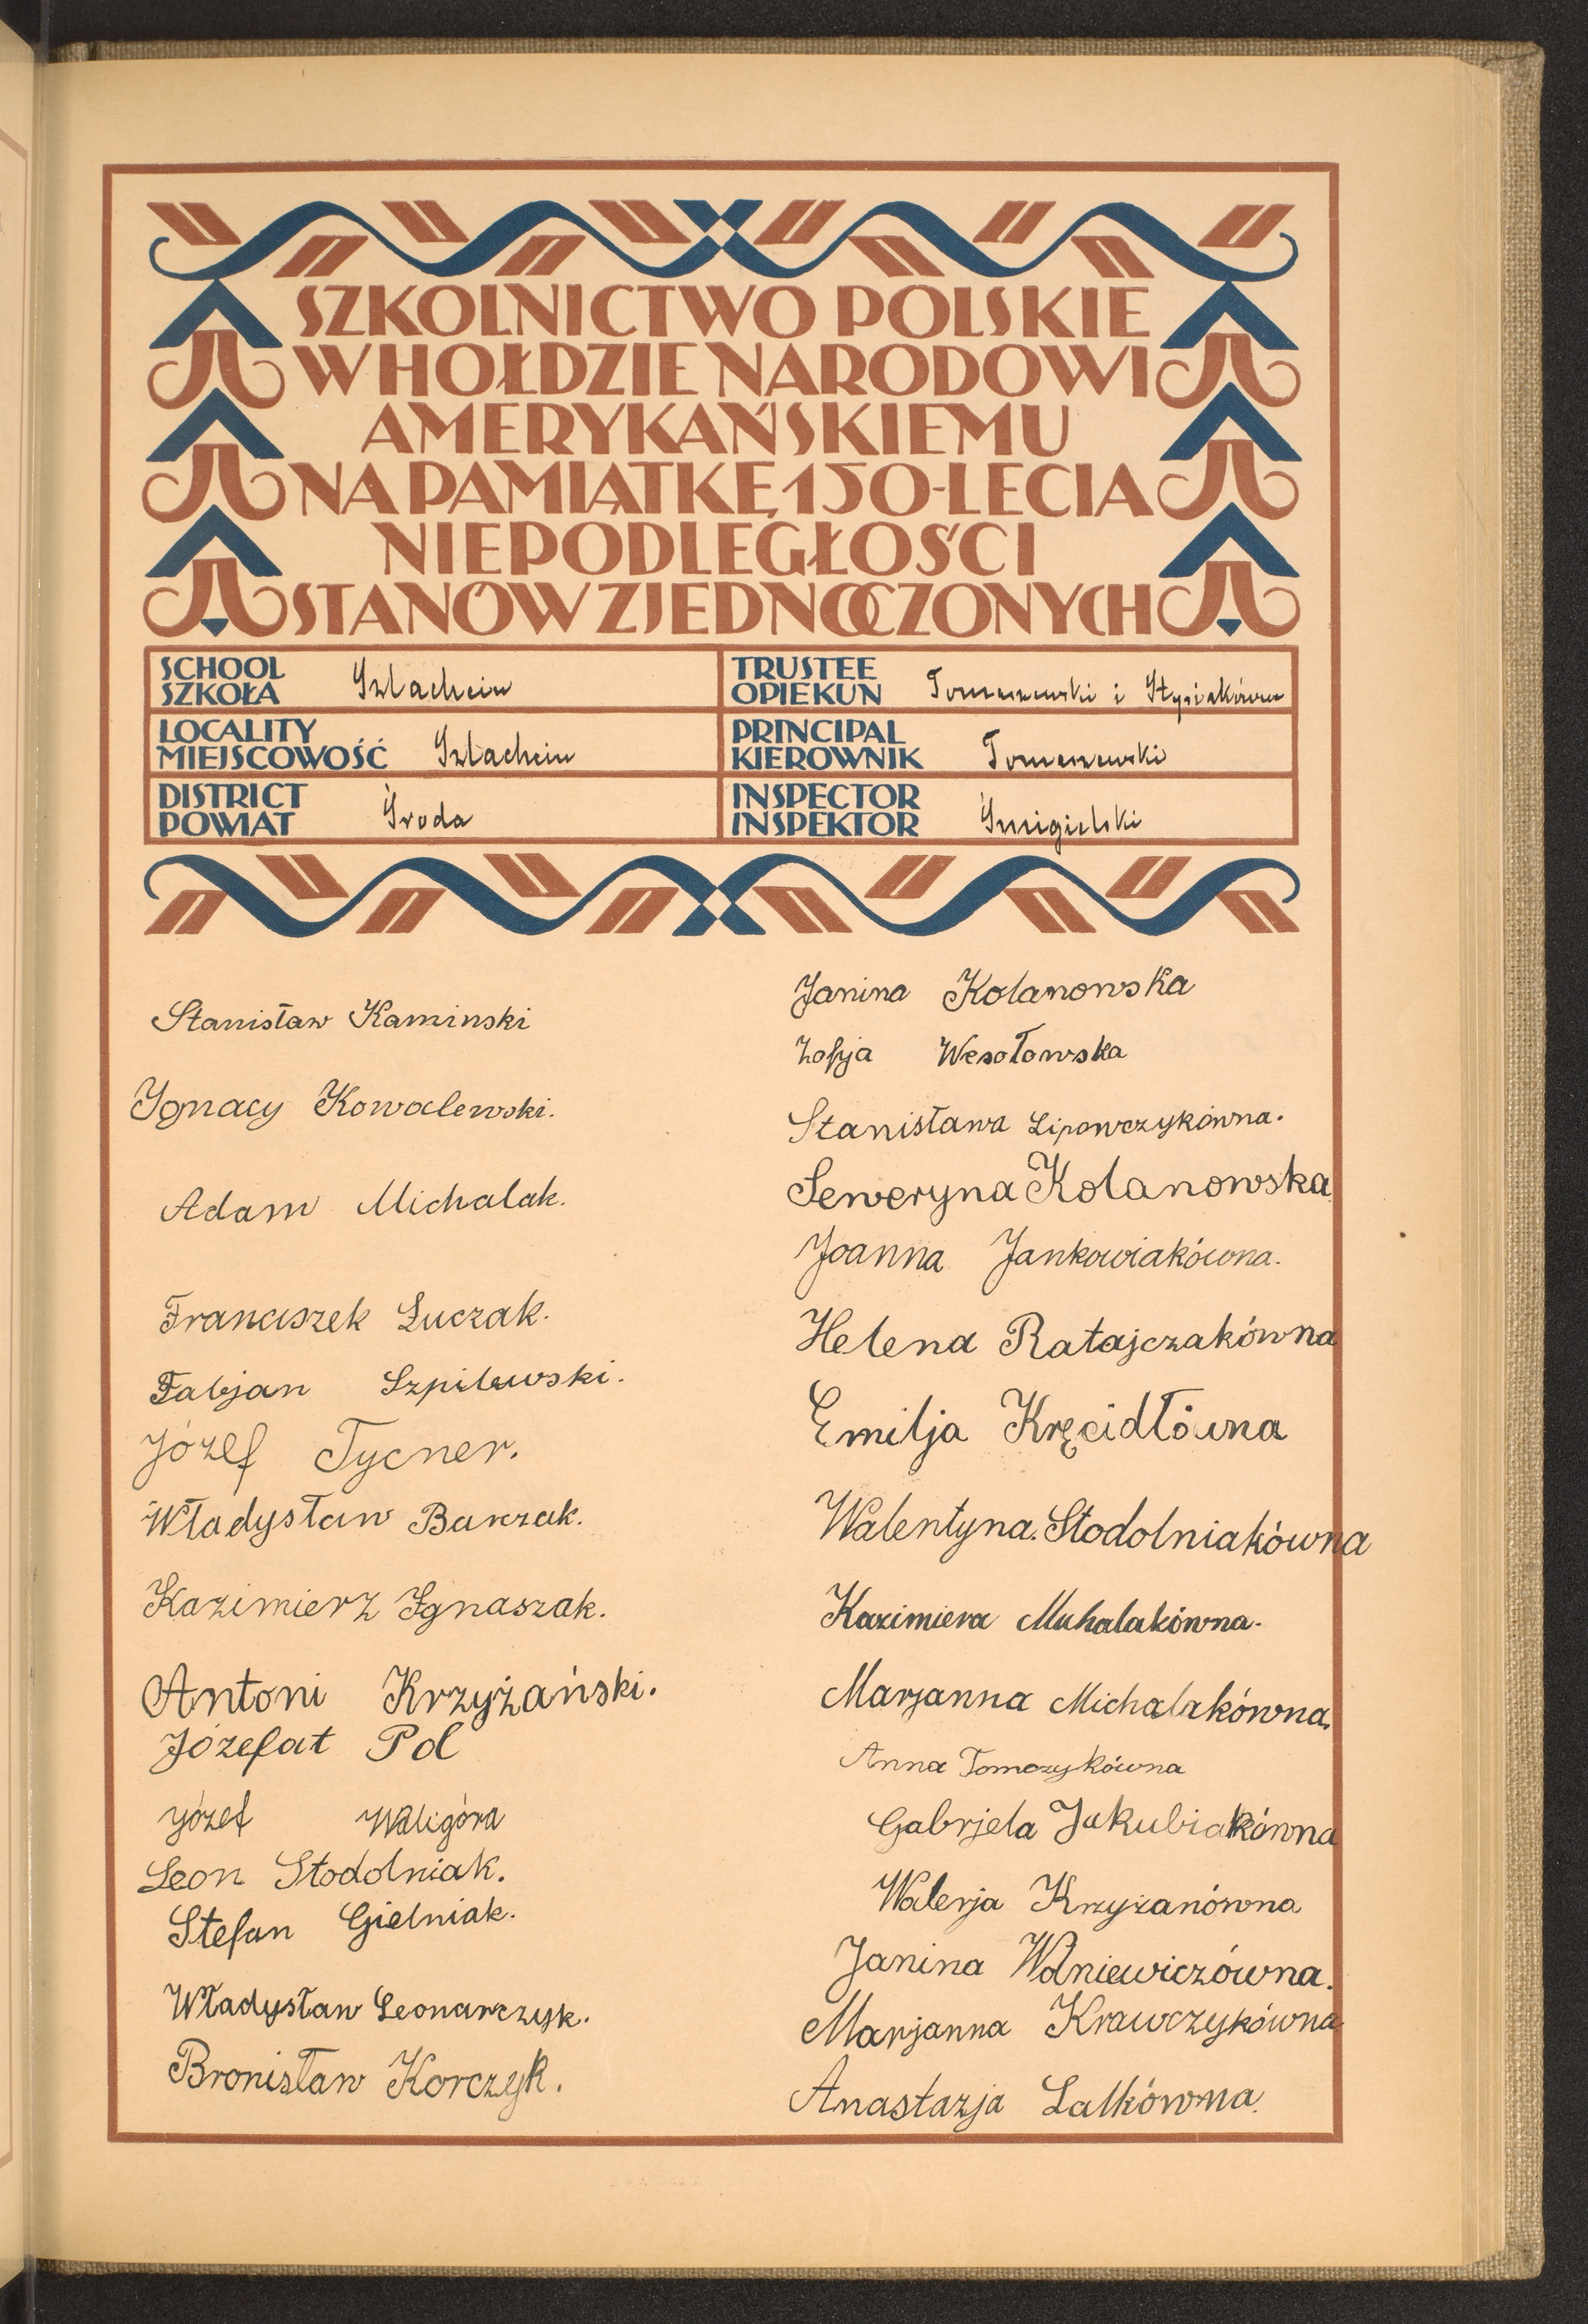 SZKOLNICTWO POLSKIE
W HOŁDZIE NARODOWI
AMERYKAŃSKIEMU
NA PAMIĄTKĘ 150-LECIA
NIEPODLEGŁOŚCI
STANÓW ZJEDNOCZONYCH
SCHOOL
SZKOŁA Szlachcin
TRUSTEE
OPIEKUN Tomaszewski i Stysiakówna
LOCALITY
MIEJSCOWOŚĆ Szlachcin
PRINCIPAL
KIEROWNIK Tomaszewski
DISTRICT
POWIAT Środa
INSPECTOR
INSPEKTOR Śmigielski
Stanisław Kaminski
Ignacy Kowalewski.
Adam Michalak.
Franciszek Łuczak.
Fabjan Szpilewski.
Józef Tycner.
Władysław Barczak.
Kazimierz Ignaszak.
Antoni Krzyżański.
Józefat Pol
Józef Waligóra
Leon Stodolniak.
Stefan Gielniak.
Władysław Leonarczyk.
Bronisław Korczyk.
Janina Kolanowska
Zofja Wesołowska
Stanisława Lipowczykówna.
Seweryna Kolanowska
Joanna Jankowiakówna.
Helena Ratajczakówna
Emilja Kręcidłówna
Walentyna Stodolniakówna
Kazimiera Michalakówna.
Marjanna Michalakówna.
Anna Tomczykówna
Gabrjela Jakubiakówna
Walerja Krzyżanówna
Janina Wolniewiczówna.
Marjanna Krawczykówna
Anastazja Lalkówna.